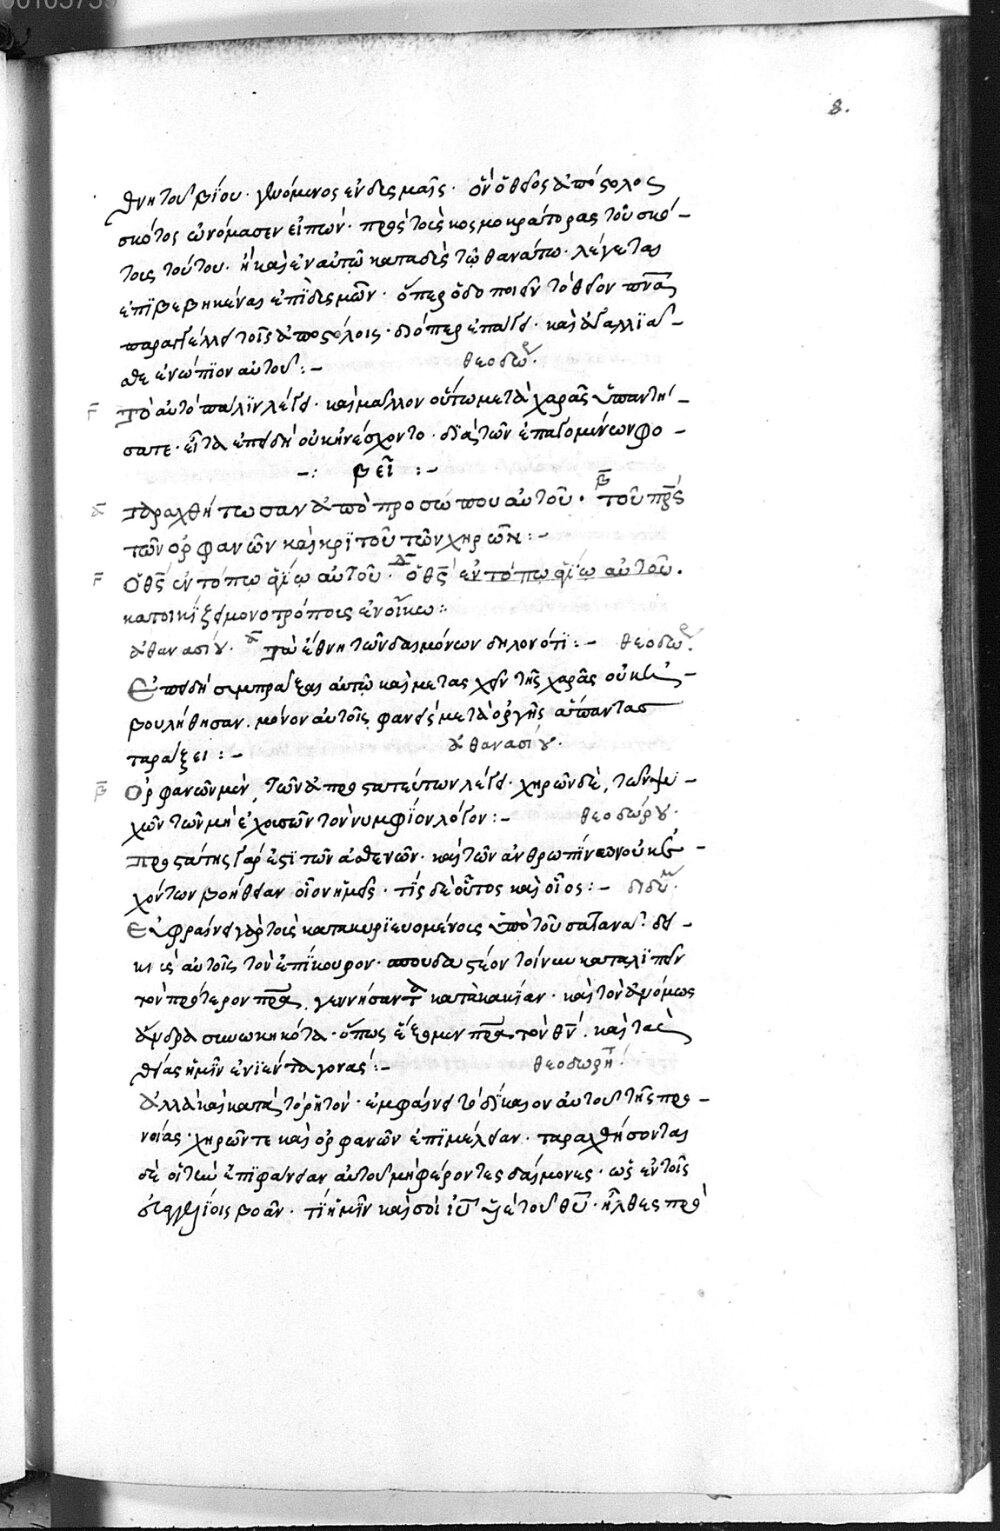 8.
θνητοῦ βίου· γενόμενος ἐν δεσμαῖς· ὃν ὁ θεῖος ἀπόστολος
σκότος ὠνόμασεν εἰπών· πρὸς τοὺς κοσμοκράτορας τοῦ σκό-
τους τούτου· ἢ καὶ ἐν αὐτῷ καταδὺς τῷ θανάτῳ· λέγεται
ἐπιβεβηκέναι ἐπὶ δεσμῶν· ὅπερ ὁδοποιεῖν τὸ θεῖον πν̅α̅
παραγγέλλει τοῖς ἀποστόλοις· διόπερ ἐπάγει· καὶ ἀγαλλιᾶ-
σθε ἐνώπιον αὐτοῦ :- θεοδώρ·
γ̅ τὸ αὐτὸ πάλιν λέγει· καὶ μᾶλλον οὕτω μετὰ χαρᾶς ὑπαντή-
σατε· εἶτα ἐπειδὴ οὐκ ἠνέσχοντο· διὰ τῶν ἐπαγομένων φο-
-: βεῖ :-
α̅ ταραχθήτωσαν ἀπὸ προσώπου αὐτοῦ· β̅ τοῦ πρ̅ς
τῶν ὀρφανῶν καὶ κριτοῦ τῶν χηρῶν :-
γ̅ ὁ θ̅ς ἐν τόπῳ ἁγίῳ αὐτοῦ· δ̅ ὁ θ̅ς ἐν τόπῳ ἁγίῳ αὐτοῦ.
κατοικίζει μονοτρόπους ἐν οἴκω :
ἀθανασίου· α̅ τὰ ἔθνη τῶν δαιμόνων δηλονότι :- θεοδώρ
Ἐπειδὴ συμπρᾶξαι αὐτῷ καὶ μετασχεῖν τῆς χαρᾶς οὐκ
βουλήθησαν· μόνον αὐτοῖς φανεὶς μετὰ ὀργῆς ἅπαντας
ταράξει :- ἀθανασίου·
β̅ Ὀρφανῶν μὲν, τῶν ἀπροστατεύτων λέγει· χηρῶν δὲ, τῶν ψυ-
χῶν τῶν μὴ ἐχουσῶν τὸν νυμφίον λόγον :- θεοδώρου·
προστάτης γάρ ἐστι τῶν ἀσθενῶν· καὶ τῶν ἀνθρωπίνων οὐκ
χόντων βοήθειαν οἷον ἡμεῖς· τίς δὲ οὗτος καὶ οἷος :- διδύμ·
Εὐφραίνει γὰρ τοὺς κατακυριευομένους ὑπὸ τοῦ σατανᾶ· δεί-
κνὺς αὐτοῖς τὸν ἐπίκουρον· σπουδαστέον τοίνυν καταλιπεῖν
τὸν πρότερον πρ̅α̅, γεννήσαντα κατὰ κακίαν· καὶ τὸν ἀνόμως
ἄνδρα συνωκηκότα· ὅπως ἕξωμεν πρ̅α̅ τὸν θ̅ν̅· καὶ τὰς
θείας ἡμῖν ἐνιέντα γονάς :- θεοδωρήτ·
Ἀλλὰ καὶ κατὰ τὸ ῥητόν· ἐμφαίνει τὸ δίκαιον αὐτοῦ τῆς προ-
νοίας· χηρῶν τε καὶ ὀρφανῶν ἐπιμέλειαν· ταραχθήσονται
δὲ οἱ τὴν ἐπιφάνειαν αὐτοῦ μὴ φέροντες δαίμονες· ὡς ἐν τοῖς
εὐαγγελίοις βοᾶν· τί ἡμῖν καὶ σοὶ ἰ̅υ̅ υἱὲ τοῦ θ̅υ̅· ἦλθες πρὸ